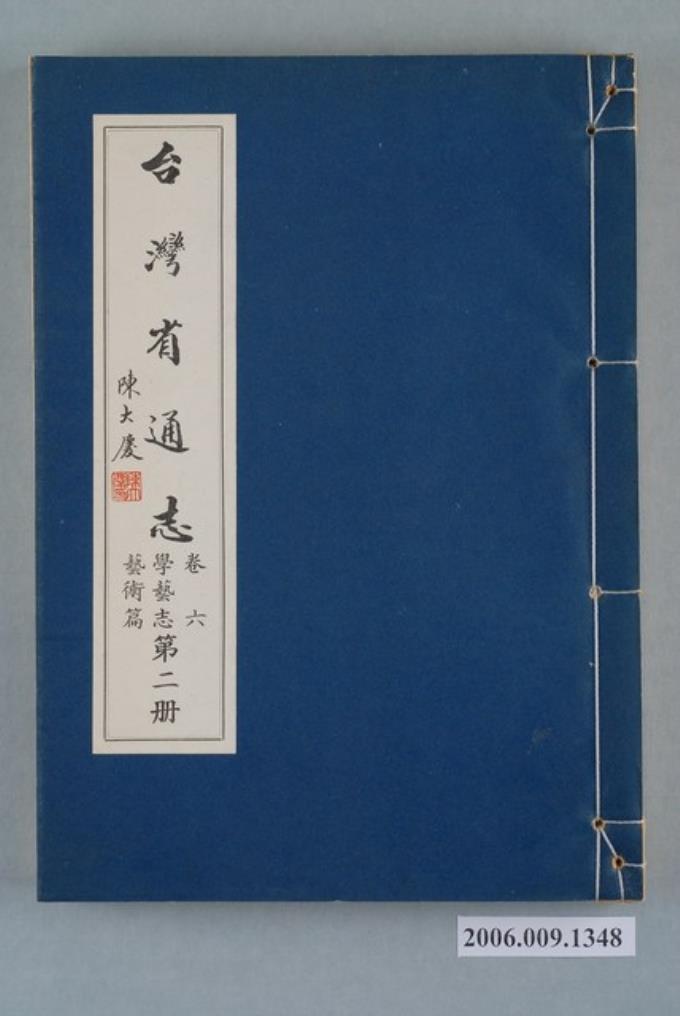 台灣省通志
卷六
學藝志
藝術篇
第二册
陳大慶
2006.009.1348